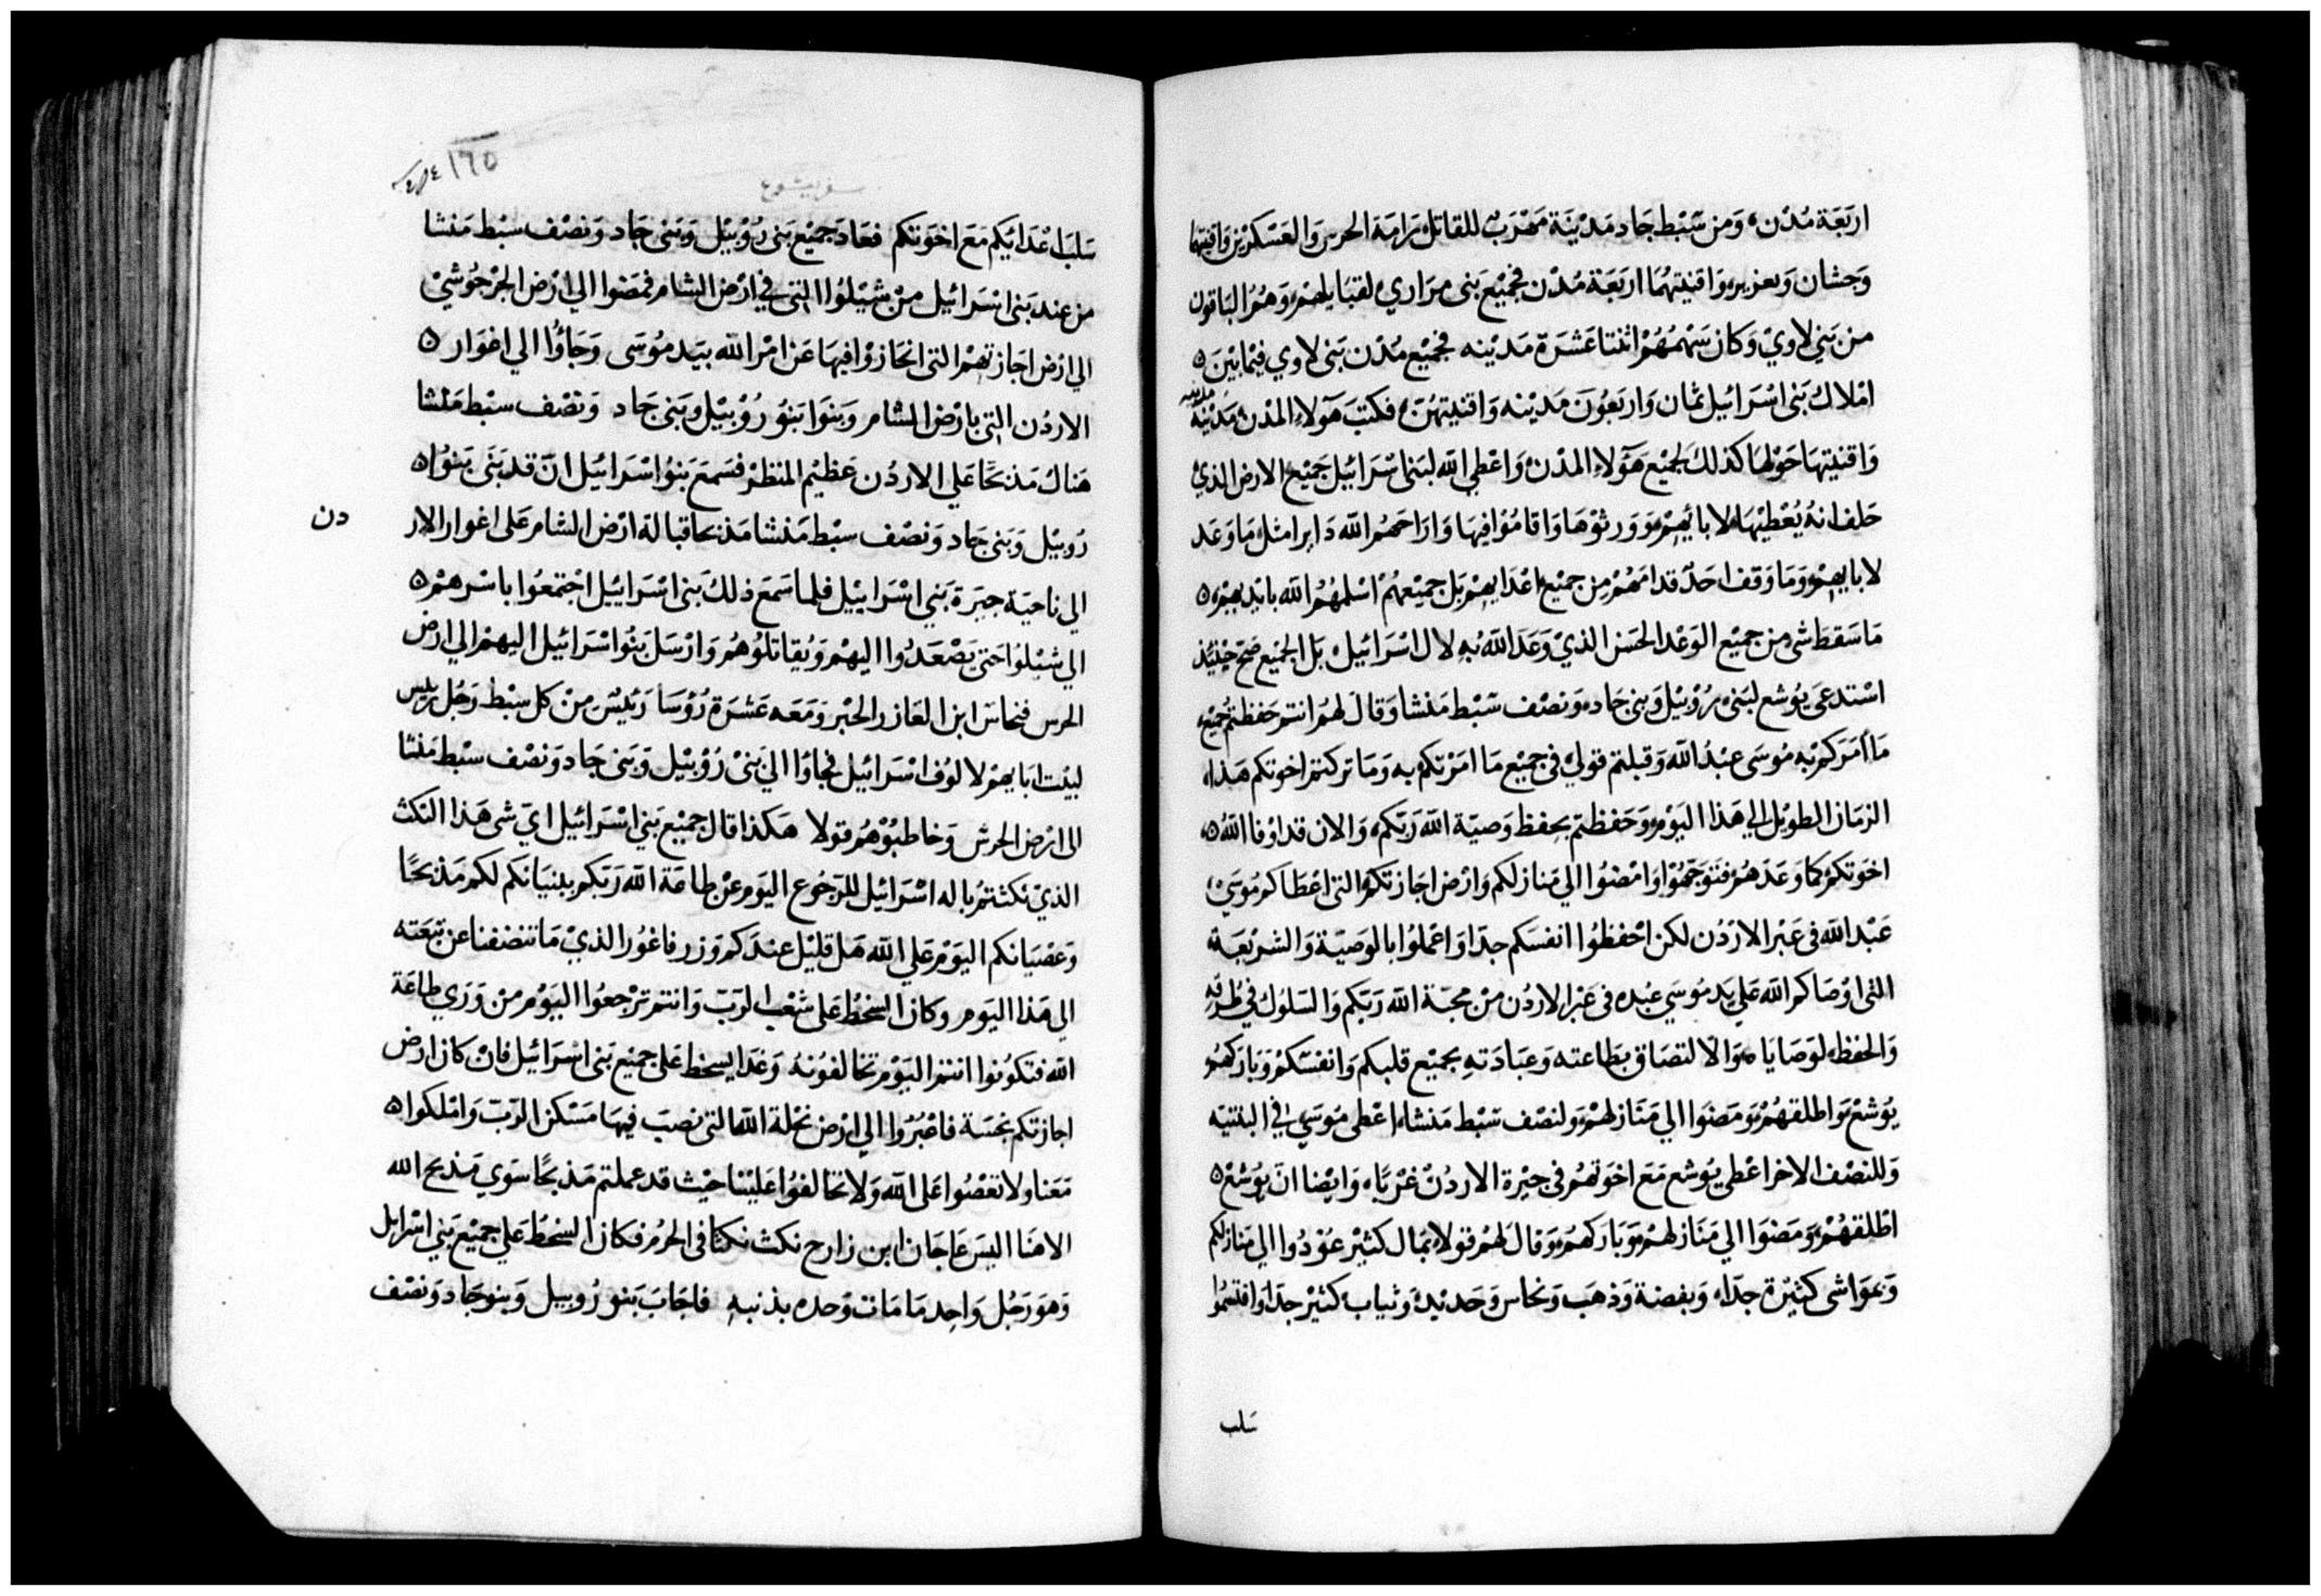 اربَعَة مُدْن، وَمن سَبْط جَاد مَدْينَة مَهْرَب للقاتل، رَامَة الحرس وَالعَسْكرين وَاقنيتها
وَحشان وَيعزير، وَاقنيتهُمَا اربَعَة مُدْن فجميْع بَنى مرَاري، لقبَايلهمْ، وَهُمُ البَاقون
من بَني لاويْ وَكان سَهْمُهُمْ اثنتا عَشرَة مَديْنه فجميْع مُدْن بَنى لاوي فيمَا بيْنَ ٥
امْلاك بَنى اسْرَائيل ثمان وَاربَعُونَ مَديْنه وَاقنيتهُنَّ، فكتبَ هَولاءِ المدْن مَدْينَه مدينه
وَاقنيتهَا حَوْلهَا كذلك لجميْع هَؤلاءِ المدْن، وَاعْطي الله لبَنى اسْرَائيل جَميْع الارض الذيْ
حَلف انهُ يُعْطيْهَا لابائهِمْ، وَوَرثوْهَا وَاقامُوْا فيهَا وَارَاحَهُم الله دَايرا مثل مَا وَعَد
لابايهِمْ، وَمَا وَقف احَدٌ قدامَهُمْ من جميْع اعْدَايهِمْ بَل جميْعهُمْ اسْلمَهُمُ الله بايْديهمْ ٥
مَا سَقط شى من جميْع الوَعْد الحَسَن الذيْ وَعَدَ اللهُ بُهِ لال اسْرَائيل، بَل الجميْع صَحّ حيْنئذ
اسْتدعَى يوُشع لبَنى رُوْبيْل وَبنى جَاد، وَنصْف سَبْط مَنشا وَقالَ لهُمْ انتم حَفظتمُ جميْع
مَا أمَرَكمْ بْه مُوسَى عبْدُ الله وَقبلتم قولي، في جميْع مَا امَرْتكمْ به وَمَا تركتم اخوتكم هَذا
الزمَان الطويْل الي هَذا اليَوْم، وَحَفظتم بحفظ وَصيّة الله رَبّكم، وَالان قد اوْفا اللهُ ٥
اخوَتكمْ كمَا وَعَدَهُمْ فتوَجّهُوْا وَامْضُوا الي مَنازلكم وَارْض اجَازتكمُ التى اعْطاكم مُوسَي
عَبْد الله فى عَبْر الارْدُن لكن احْفظوُا انفسَكم جدّا وَاعْملوُا بالوَصيّة وَالشرْيعَة
التى اوْصَاكم الله عَلى يَد مُوسَي عبْده فى عَبْر الاردُن منْ محبّة الله رَبّكم وَالسلوُك في طُرقه
وَالحفظ، لوَصَايَاه، وَالالتصَاق بطاعته وَعبَادَتهِ بجميْع قلبكم وَانفسَكمْ وَبَارَكهُمْ
يوُشعْ وَاطلقهُمْ، وَمضَوا الي مَنَازلهمْ، وَلنصْف سَبْط مَنشا، اعْطى مُوسَيٰ في البثنيّه
وَللنصْف الاخر اعْطى يوُشع مَعَ اخوَتهُمْ فى جيْرة الاردُنْ غرْبًا، وَايْضا انّ يوُشعْ ٥
اطْلقهُمْ، وَمَضَوا الي مَنَازلهمْ، وَبَارَكهُمْ، وَقالَ لهُمْ قولا، بمَال كثيْر عُوْدُوا الي مَنازلكم
وَبمَوَاشى كثيْرَة جدّا، وَبفضة وَذهَب وَنحَاس وَحَديْد، وَثيَاب كثيْر جدّا وَاقتسمُوا
سَلب
١٦٥
سفر يشوع
سَلبَ اعْدَائكم مَعَ اخوَتكم فعَادَ جميْع بَنى رُوْبيْل وَبَنى جَاد وَنصْف سبْط مَنشا
من عند بَنى اسْرَائيل منْ شيْلوُا التى في ارْض الشام فمَضوا الي ارْض الجرْجُوشيْ
الي ارْض اجَازتهمْ التى انحَازوْا فيهَا عَن امْر الله بيَد مُوسَى وَجَاؤُا الي اغوَار ٥
الاردُن التى بارْض الشام وَبنوَا بَنوُ رُوْبيْل وَبَنى جَاد وَنصْف سبْط مَنشا
هَناك مَذبحًا عَلي الاردُن عَظيْم المنظر فسَمعَ بَنوُا اسْرَائيل انّ قد بَنَى بَنوُا ٥
رُوبيْل وَبَنى جَاد وَنصْف سبْط مَنشا مَذبحا قبالة ارْض الشام عَلى اغوار الار دن
الي ناحيَة جيَرة بَنى اسْرَاييْل فلما سَمعَ ذلك بَنى اسْرَاييل اجْتمعُوا باسْرهمْ ٥
الي شيْلوُا حَتى يَصْعَدُوا اليهمْ وَيُقاتلوُهُم وَارْسَل بَنوُا اسْرَائيل اليهم الي ارْض
الحرس فنحاس ابن العَازر الحَبْر وَمَعَه عَشرَة رُؤسَا رَئيْس منْ كل سبْط رَجُل رييس
لبيْت ابَايهمْ لالوُف اسْرَائيل فجاؤا الي بَنىْ رُوْبيْل وَبَنى جَاد وَنصْف سبْط مَنشا
الى ارْض الحرش وَخاطبُوْهُم قولا هَكذا قال جميْع بَنى اسْرَائيل ايّ شى هَذا النكث
الذيْ نكثتمُ باله اسْرَائيل للرجُوع اليوم عنْ طاعَة الله رَبّكم ببنيَانكم لكم مَذبحًا
وَعصْيَانكم اليَوْم عَلي الله هَل قليْل عندَكم وزر فاغوُر الذيْ مَا تنضفنا عن تبعَته
الي هَذا اليَوم وَكان السخط عَلى شعْب الرَبّ وَانتم ترْجعُوا اليَوْم منْ وَرَي طاعَة
الله فتكونُوا انتم اليَوْم تخالفوُنهُ وَغدَا يسخط عَلى جميْع بَنى اسْرَائيل فانْ كان ارْض
اجازتكم نجسَة فاعْبُرُوا الي ارْض نحْلة الله التى نصبَ فيهَا مَسْكن الرَبّ وَامْلكوا ٥
مَعَنا ولا تعْصُوا عَلى الله وَلا تخالفوُا عَليْنا حيْث قد عملتم مَذبحًا سوَي مَذبح الله
الاهَنا اليسَ عَاجَان ابن زارح نكث نكثا فى الحرْم فكان السخط عَلي جميْع بَني اسْرايل
وَهوَ رَجُل وَاحد مَا مَات وَحده بذنبهِ فاجَابَ بَنو رُوبيل وَبنو جَاد وَنصْف